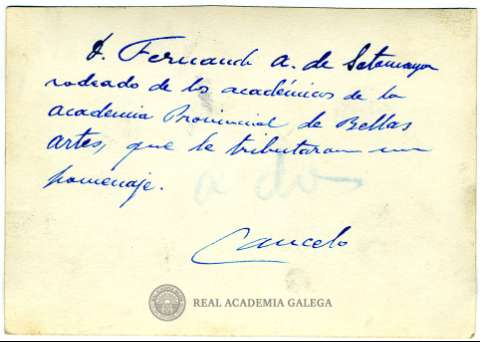 D. Fernando A. de Sotomayor
rodeado de los académicos de la
academia Provincial de Bellas
Artes, que le tributaron un
homenaje.
Cancelo
REAL ACADEMIA GALEGA